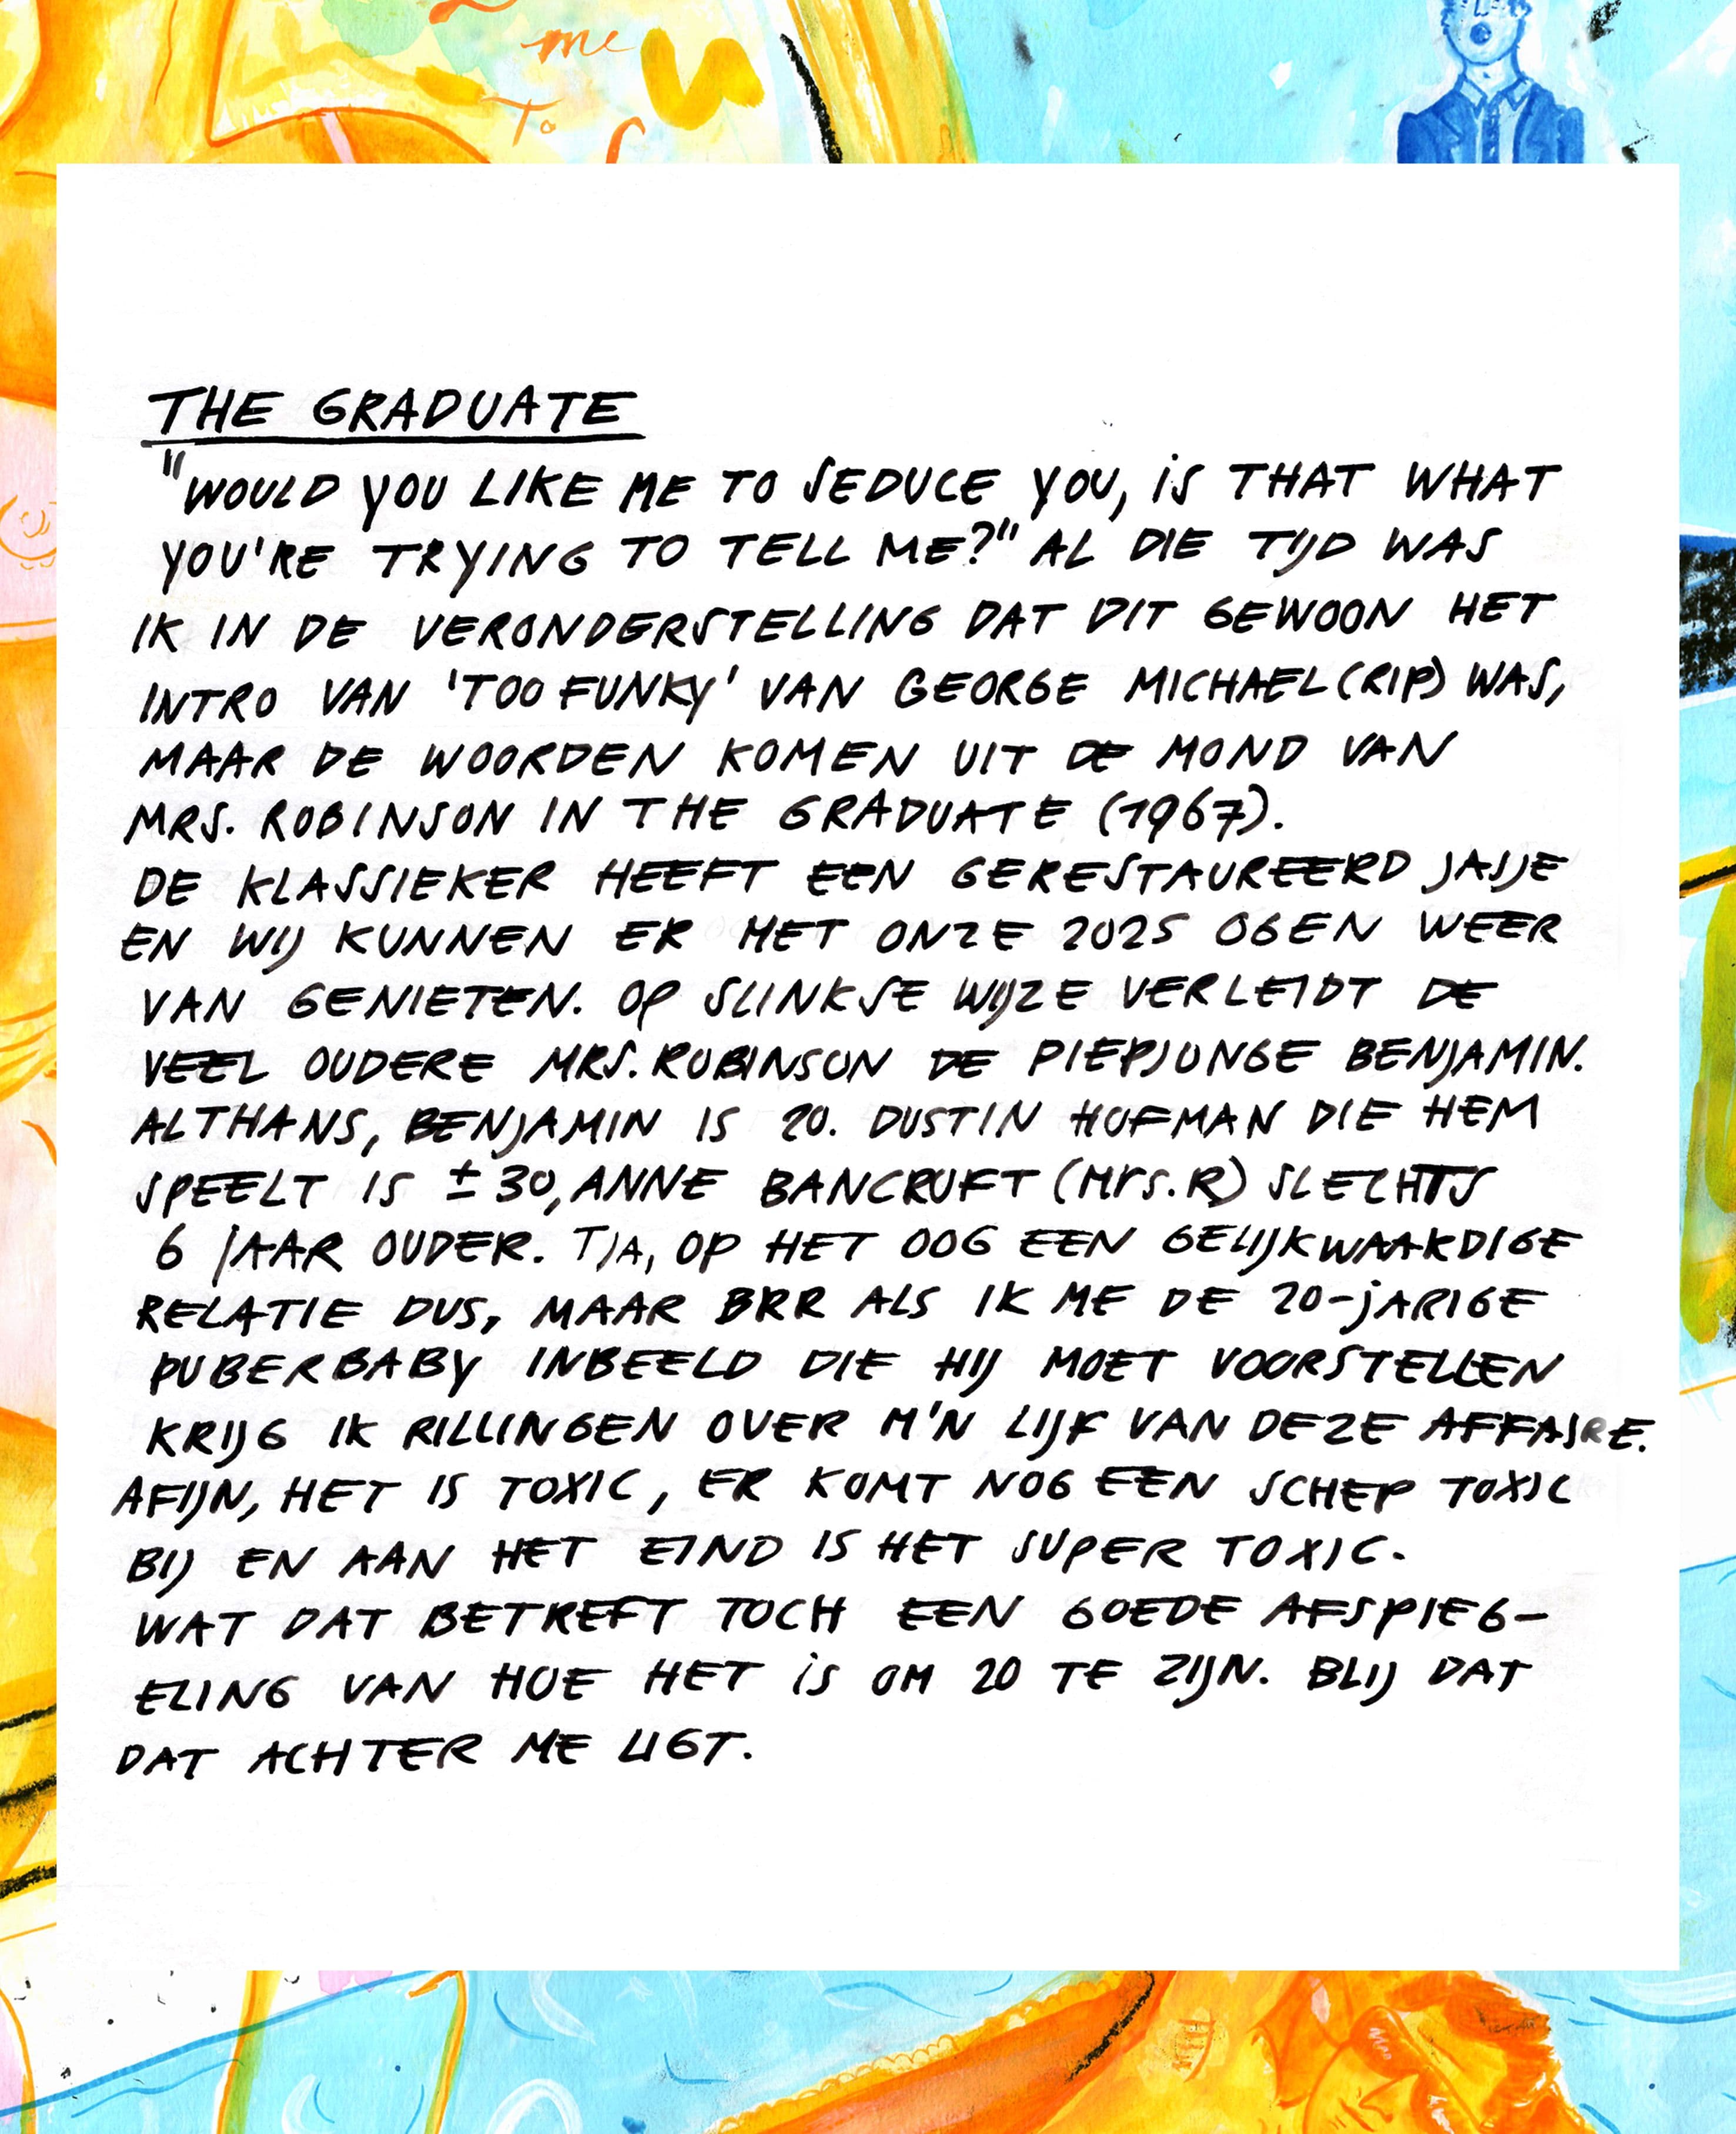 me
To
THE GRADUATE
"WOULD YOU LIKE ME TO SEDUCE YOU, iS THAT WHAT
YOU'RE TRYING TO TELL ME?" AL DIE TIJD WAS
IK IN DE VERONDERSTELLING DAT DIT GEWOON HET
INTRO VAN 'TOO FUNKY' VAN GEORGE MICHAEL (RIP) WAS,
MAAR DE WOORDEN KOMEN UIT DE MOND VAN
MRS. ROBINSON IN THE GRADUATE (1967).
DE KLASSIEKER HEEFT EEN GERESTAUREERD JASJE
EN WIJ KUNNEN ER MET ONZE 2025 OGEN WEER
VAN GENIETEN. OP SLINKSE WIJZE VERLEIDT DE
VEEL OUDERE MRS. ROBINSON DE PIEPJONGE BENJAMIN.
ALTHANS, BENJAMIN IS 20. DUSTIN HOFMAN DIE HEM
SPEELT IS ± 30, ANNE BANCROFT (Mrs. R) SLECHTS
6 JAAR OUDER. TJA, OP HET OOG EEN GELIJKWAARDIGE
RELATIE DUS, MAAR BRR ALS IK ME DE 20-jARIGE
PUBERBABY INBEELD DIE HIJ MOET VOORSTELLEN
KRIJG IK RILLINGEN OVER M'N LIJF VAN DEZE AFFAIRE.
AFIJN, HET IS TOXIC, ER KOMT NOG EEN SCHEP TOXIC
BIJ EN AAN HET EIND IS HET SUPER TOXIC.
WAT DAT BETREFT TOCH EEN GOEDE AFSPIEG-
ELING VAN HOE HET iS OM 20 TE ZIJN. BLIJ DAT
DAT ACHTER ME LIGT.